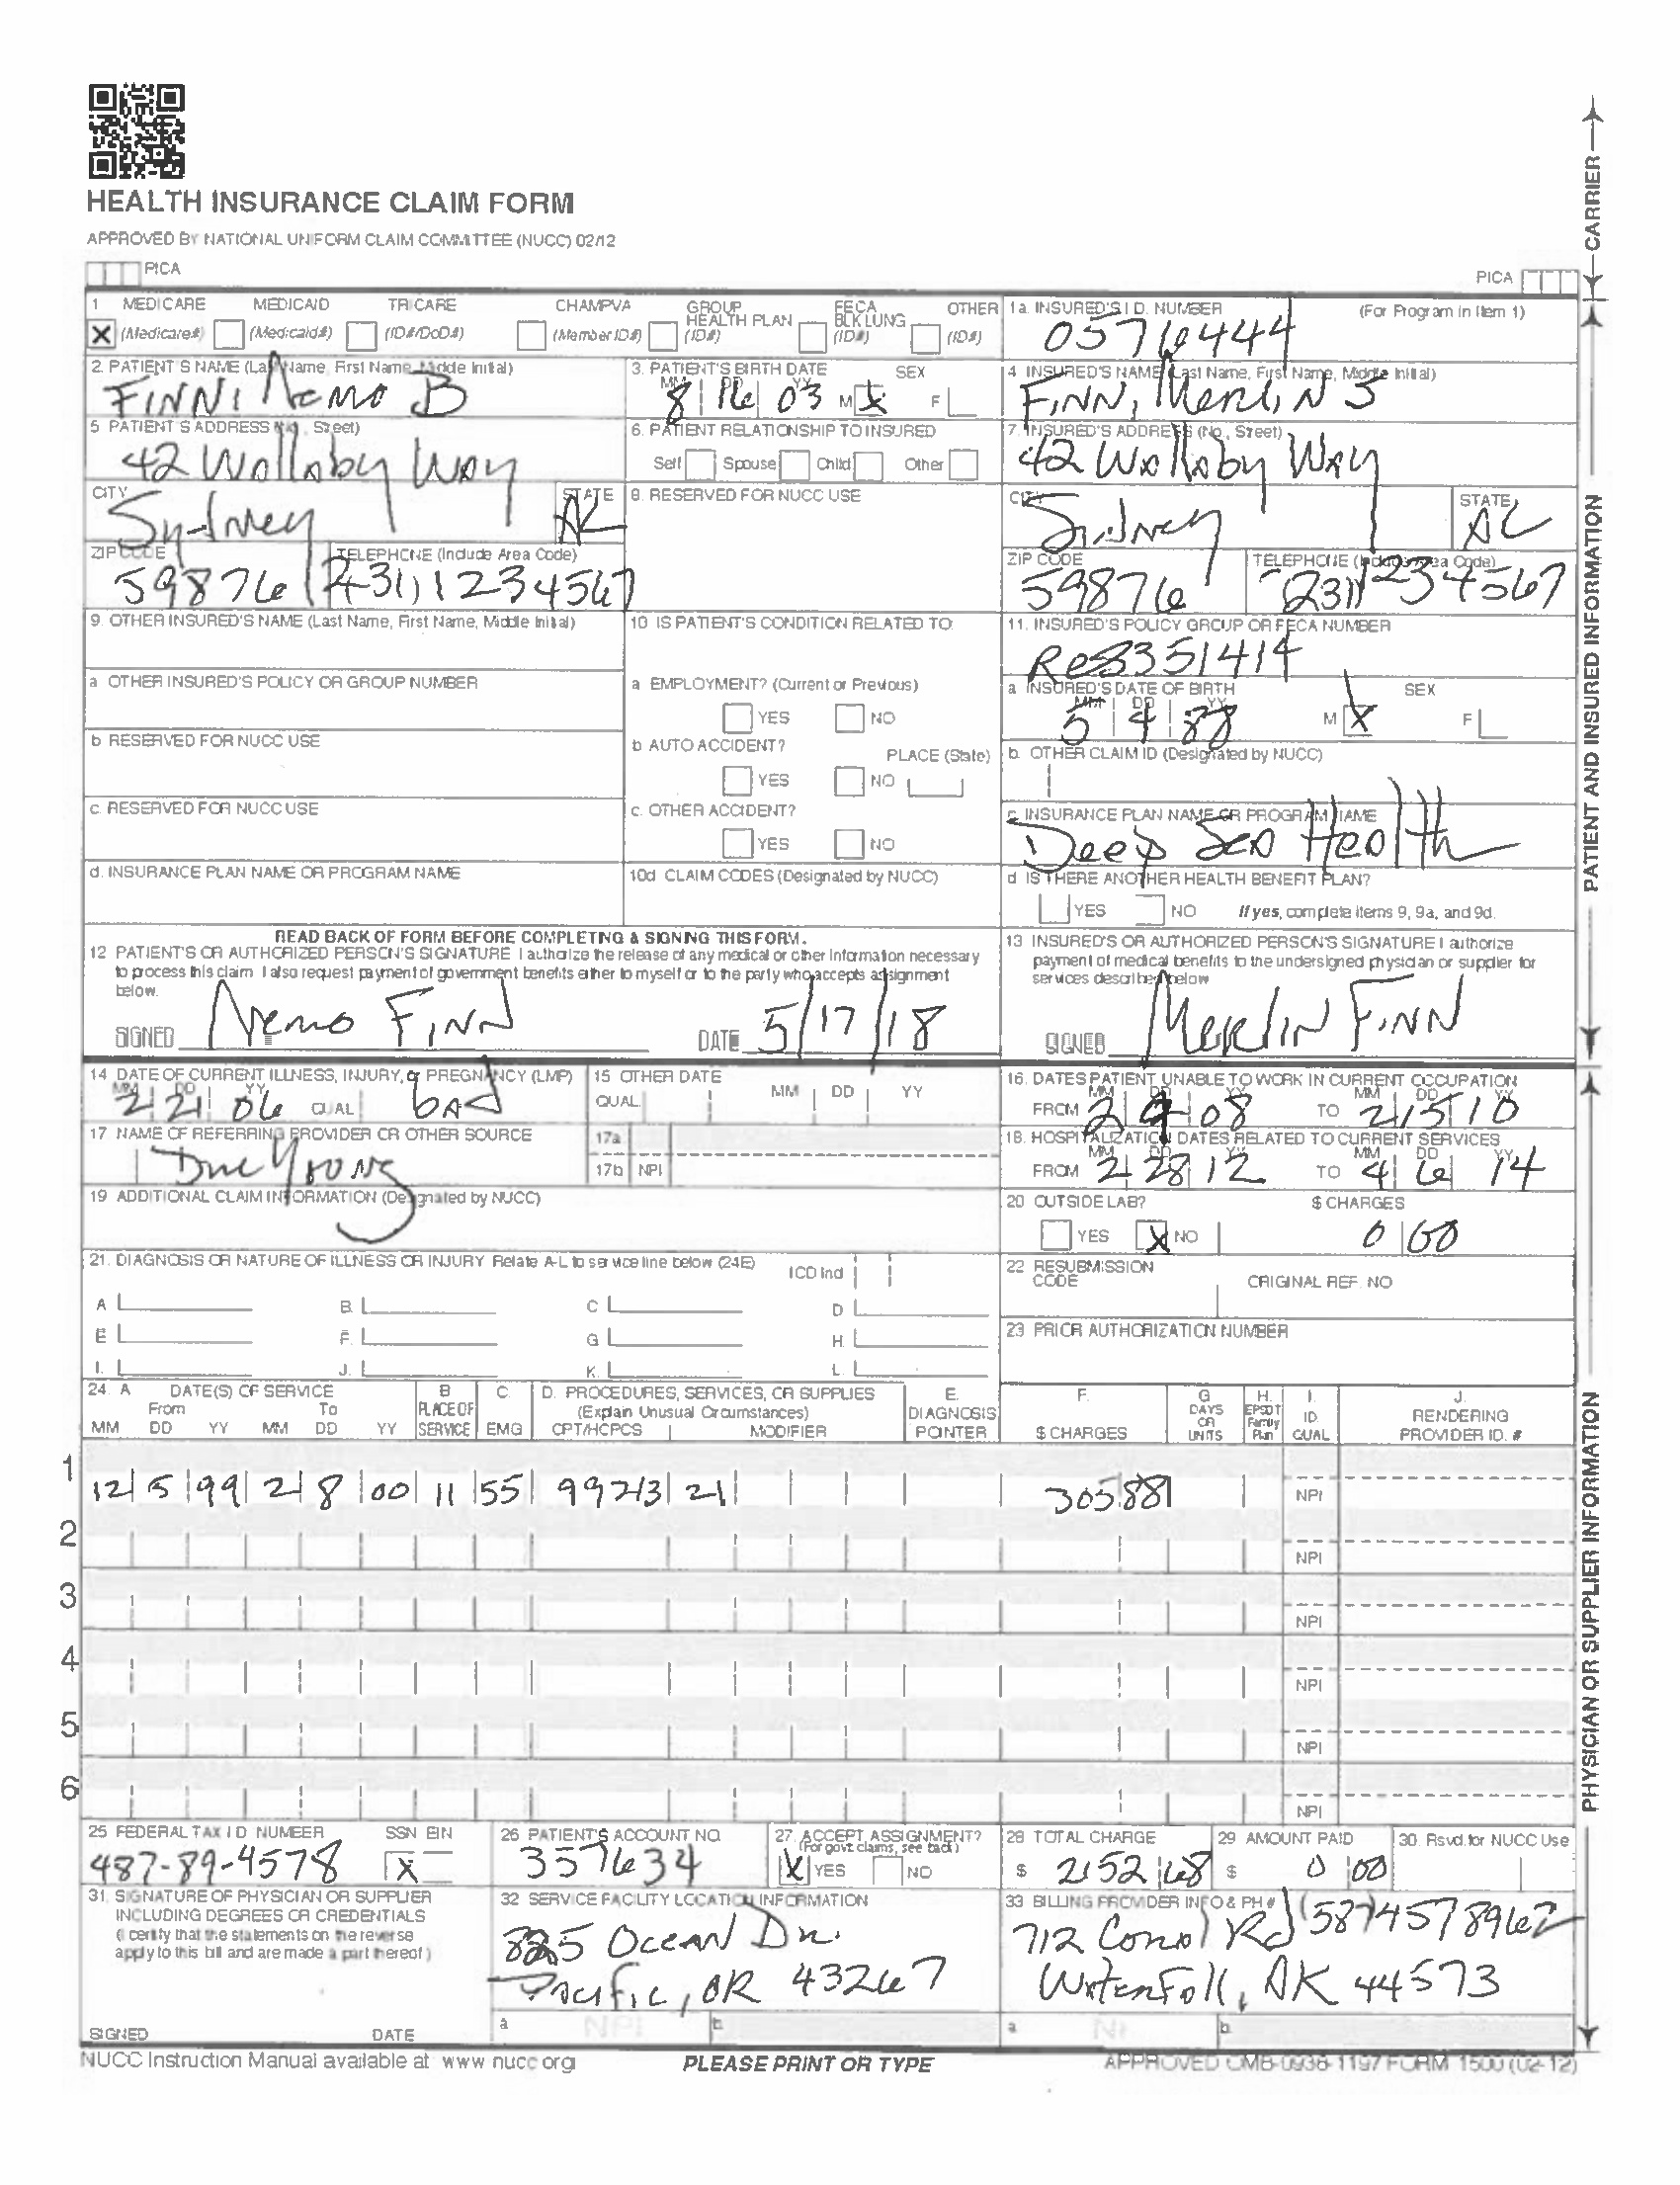 HEALTH INSURANCE CLAIM FORM
APPROVED BY NATIONAL UNIFORM CLAIM COMMITTEE (NUCC) 02/12
PICA
PICA
CARRIER
1 MEDICARE MEDICAID TRICARE CHAMPVA GROUP HEALTH PLAN FECA BLK LUNG OTHER
X (Medicare#) (Medicaid#) (ID#/DoD#) (Member ID#) (ID#) (ID#) (ID#)
1a. INSURED'S I.D. NUMBER (For Program in Item 1)
05766444
2. PATIENT'S NAME (Last Name, First Name, Middle Initial)
FINN, Nemo B
3. PATIENT'S BIRTH DATE SEX
MM DD YY
8 16 03 M X F
4 INSURED'S NAME (Last Name, First Name, Middle Initial)
FINN, Merlin S
5 PATIENT'S ADDRESS (No., Street)
42 Wallaby Way
6. PATIENT RELATIONSHIP TO INSURED
Self Spouse Child Other
7. INSURED'S ADDRESS (No., Street)
42 Wallaby Way
CITY STATE
Sydney AL
8. RESERVED FOR NUCC USE
CITY STATE
Sydney AL
ZIP CODE TELEPHONE (Include Area Code)
59876 231) 1234567
ZIP CODE TELEPHONE (Include Area Code)
59876 231) 1234567
9. OTHER INSURED'S NAME (Last Name, First Name, Middle Initial)
10 IS PATIENT'S CONDITION RELATED TO:
11. INSURED'S POLICY GROUP OR FECA NUMBER
a OTHER INSURED'S POLICY OR GROUP NUMBER
a EMPLOYMENT? (Current or Previous)
YES NO
a INSURED'S DATE OF BIRTH SEX
MM DD YY
5 4 88 M X F
b RESERVED FOR NUCC USE
b AUTO ACCIDENT? PLACE (State)
YES NO
b. OTHER CLAIM ID (Designated by NUCC)
c. RESERVED FOR NUCC USE
c. OTHER ACCIDENT?
YES NO
c. INSURANCE PLAN NAME OR PROGRAM NAME
Deep Sea Health
d. INSURANCE PLAN NAME OR PROGRAM NAME
10d CLAIM CODES (Designated by NUCC)
d IS THERE ANOTHER HEALTH BENEFIT PLAN?
YES NO If yes, complete items 9, 9a, and 9d.
READ BACK OF FORM BEFORE COMPLETING & SIGNING THIS FORM.
12 PATIENT'S OR AUTHORIZED PERSON'S SIGNATURE I authorize the release of any medical or other information necessary
to process this claim I also request payment of government benefits either to myself or to the party who accepts assignment
below.
SIGNED Nemo Finn DATE 5/17/18
13 INSURED'S OR AUTHORIZED PERSON'S SIGNATURE I authorize
payment of medical benefits to the undersigned physician or supplier for
services described below
SIGNED Merlin Finn
PATIENT AND INSURED INFORMATION
14 DATE OF CURRENT ILLNESS, INJURY, or PREGNANCY (LMP)
MM DD YY
2 21 06 QUAL bad
15 OTHER DATE
QUAL MM DD YY
16. DATES PATIENT UNABLE TO WORK IN CURRENT OCCUPATION
MM DD YY MM DD YY
FROM 2 9 08 TO 2 15 10
17 NAME OF REFERRING PROVIDER OR OTHER SOURCE
Young
17a
17b NPI
18. HOSPITALIZATION DATES RELATED TO CURRENT SERVICES
MM DD YY MM DD YY
FROM 2 28 12 TO 4 6 14
19 ADDITIONAL CLAIM INFORMATION (Designated by NUCC)
20 OUTSIDE LAB? $ CHARGES
YES X NO 0 00
21. DIAGNOSIS OR NATURE OF ILLNESS OR INJURY Relate A-L to service line below (24E) ICD Ind
A B. C D
E F. G H.
I. J. K. L.
22 RESUBMISSION CODE ORIGINAL REF. NO
23 PRIOR AUTHORIZATION NUMBER
24. A DATE(S) OF SERVICE B C. D. PROCEDURES, SERVICES, OR SUPPLIES E. F. G H. I. J.
From To PLACE OF (Explain Unusual Circumstances) DIAGNOSIS DAYS OR UNITS EPSDT Family Plan ID. QUAL RENDERING
MM DD YY MM DD YY SERVICE EMG CPT/HCPCS MODIFIER POINTER $ CHARGES PROVIDER ID. #
1
12 5 99 2 8 00 11 55 99213 21 305 88 NPI
2 NPI
3 NPI
4 NPI
5 NPI
6 NPI
25 FEDERAL TAX I D NUMBER SSN EIN
487-89-4578 X
26 PATIENT'S ACCOUNT NO.
357634
27. ACCEPT ASSIGNMENT?
(For govt claims, see back)
X YES NO
28 TOTAL CHARGE
$ 2152 68
29 AMOUNT PAID
$ 0 00
30. Rsvd.for NUCC Use
31. SIGNATURE OF PHYSICIAN OR SUPPLIER
INCLUDING DEGREES OR CREDENTIALS
(I certify that the statements on the reverse
apply to this bill and are made a part thereof )
SIGNED DATE
32 SERVICE FACILITY LOCATION INFORMATION
825 Ocean Dr.
Pacific, OR 43267
a NPI b.
33 BILLING PROVIDER INFO & PH #
(587)4578962
712 Coral Rd
Waterfall, AK 44573
a NPI b
PHYSICIAN OR SUPPLIER INFORMATION
NUCC Instruction Manual available at www nucc org
PLEASE PRINT OR TYPE
APPROVED OMB-0938-1197 FORM 1500 (02-12)